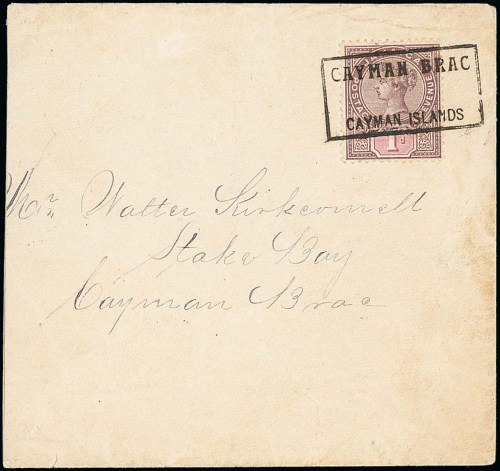 CAYMAN BRAC
CAYMAN ISLANDS
1D
Mr. Walter Kirkconnell
Stake Bay
Cayman Brac